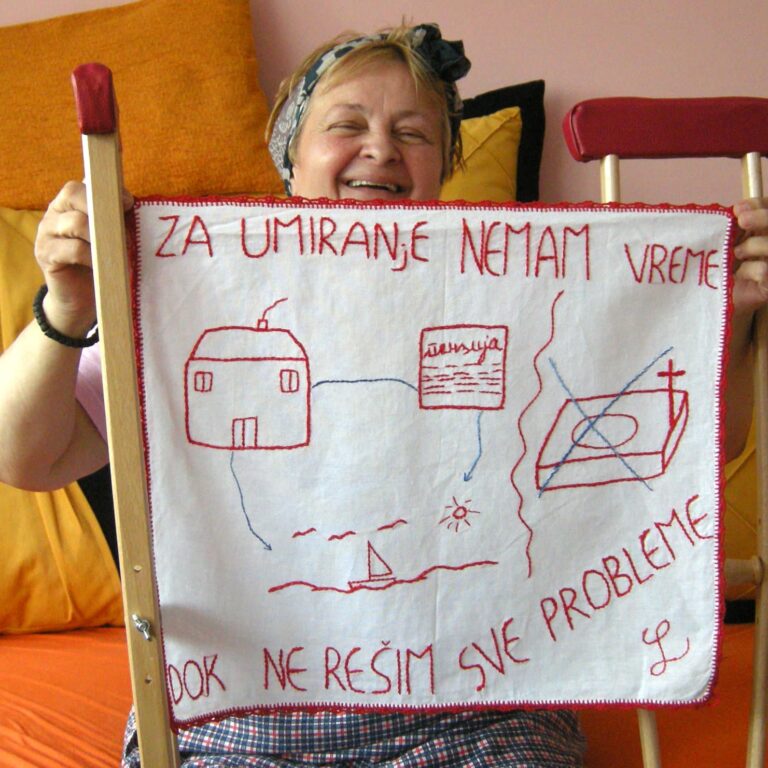 ZA UMIRANjE NEMAM VREME
пензија
DOK NE REŠIM SVE PROBLEME
L